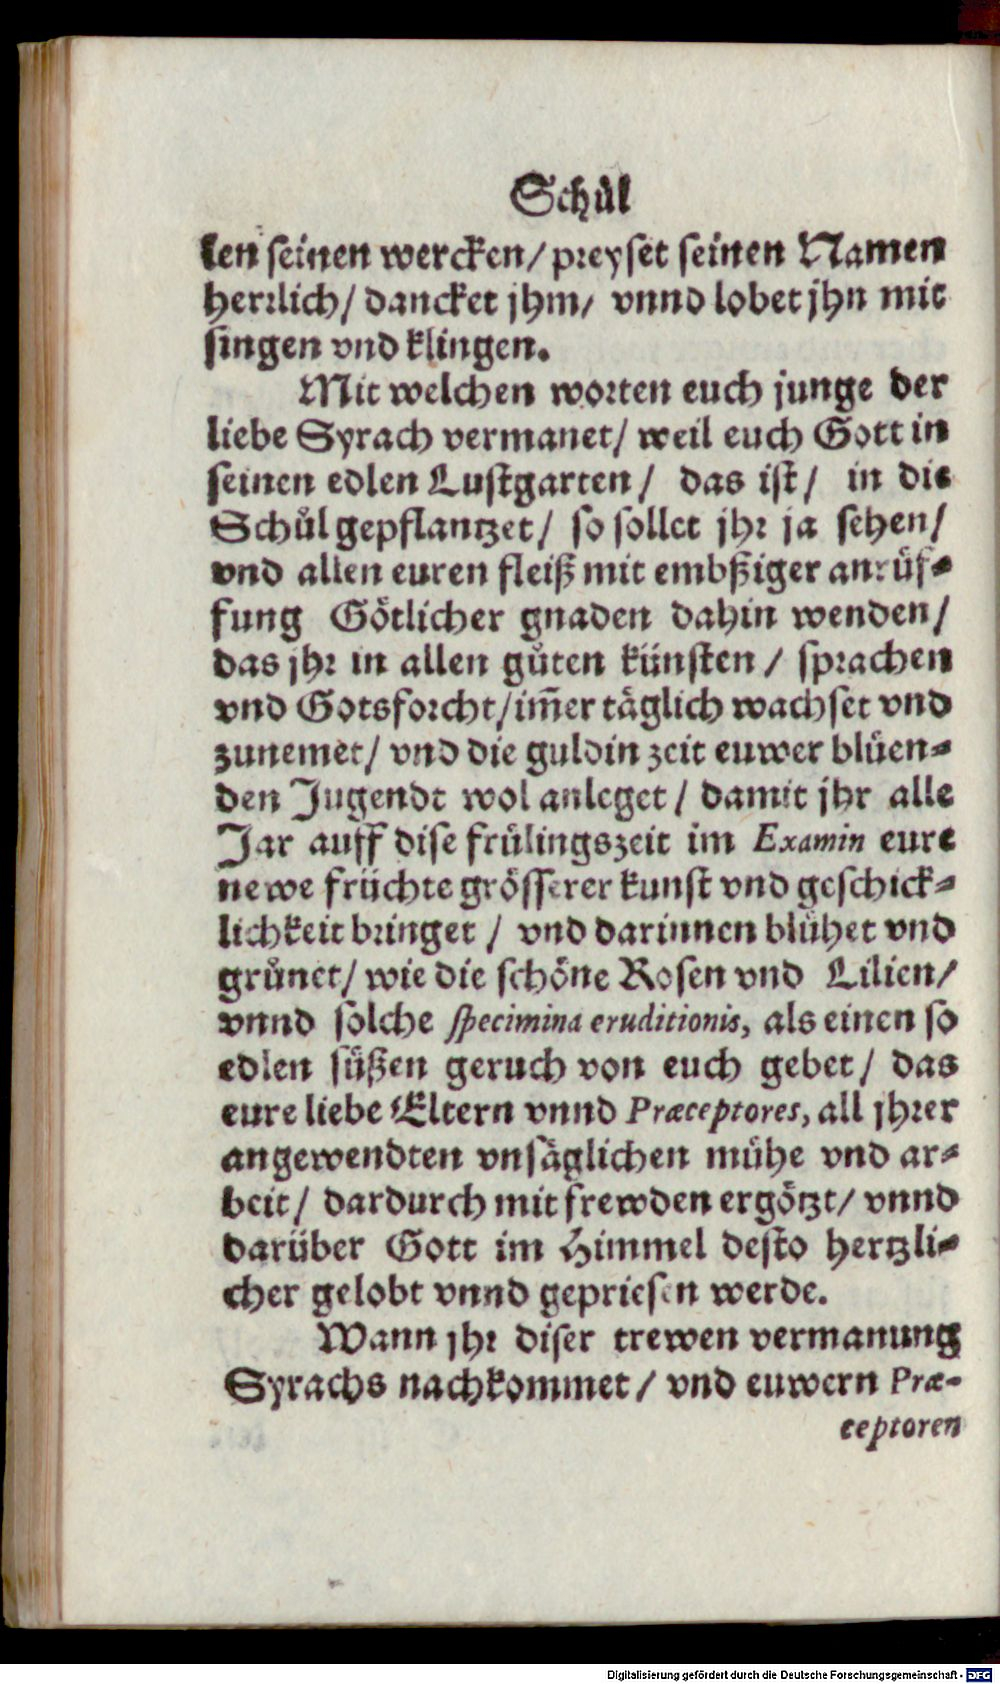 Schůl
len seinen wercken/ preyset seinen Namen
herrlich/ dancket jhm/ vnnd lobet jhn mit
singen vnd klingen.
Mit welchen worten euch junge der
liebe Syrach vermanet/ weil euch Gott in
seinen edlen Lustgarten/ das ist/ in die
Schůl gepflantzet/ so sollet jhr ja sehen/
vnd allen euren fleiß mit embßiger anrůf-
fung Götlicher gnaden dahin wenden/
das jhr in allen gůten künsten/ sprachen
vnd Gotsforcht/ im̃er täglich wachset vnd
zunemet/ vnd die guldin zeit euwer blüen-
den Jugendt wol anleget/ damit jhr alle
Jar auff dise frülingszeit im Examin eure
newe früchte grösserer kunst vnd geschick-
lichkeit bringet/ vnd darinnen blühet vnd
grůnet/ wie die schöne Rosen vnd Lilien/
vnnd solche specimina eruditionis, als einen so
edlen süßen geruch von euch gebet/ das
eure liebe Eltern vnnd Præceptores, all jhrer
angewendten vnsäglichen mühe vnd ar-
beit/ dardurch mit frewden ergötzt/ vnnd
darüber Gott im Himmel desto hertzli-
cher gelobt vnnd gepriesen werde.
Wann jhr diser trewen vermanung
Syrachs nachkommet/ vnd euwern Præ-
ceptoren
Digitalisierung gefördert durch die Deutsche Forschungsgemeinschaft - DFG